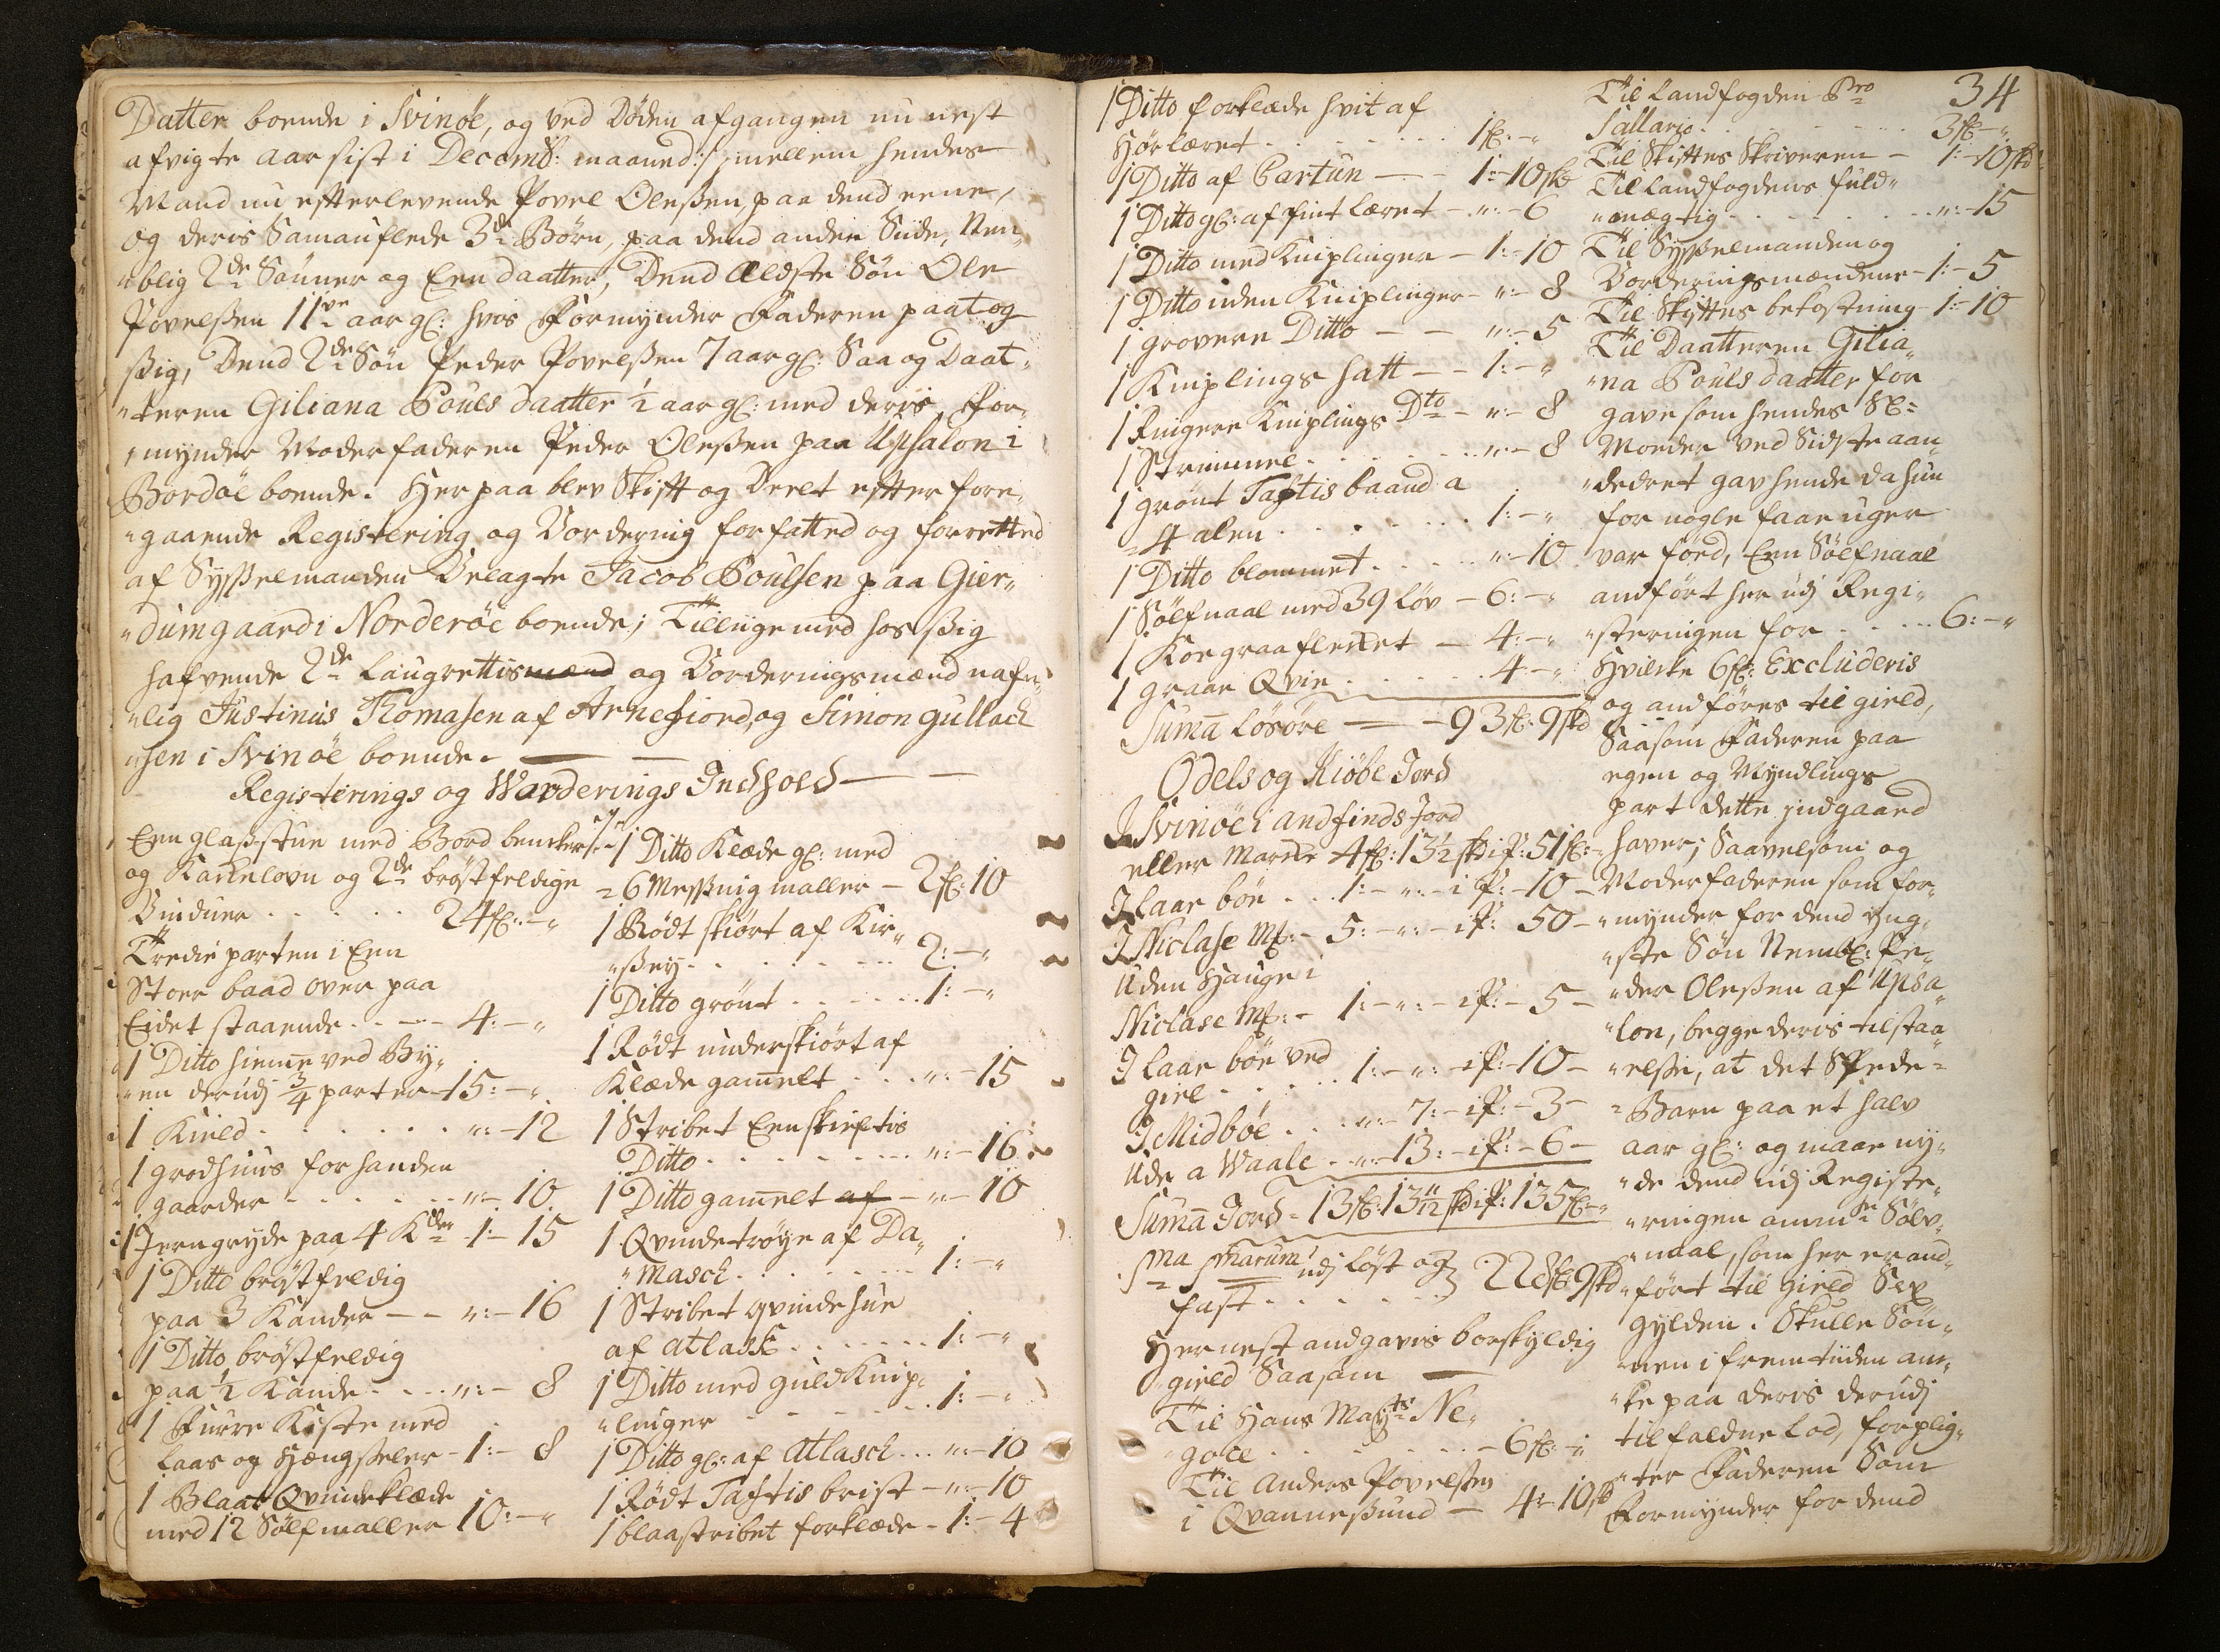 Datter boende i Svinöe, og ved Döden afgangen nu nest
afvigte aar sist i Decemb: maaned:/, mellem hendes
Mand nu efterlevende Povel Oleßen, paa dend eene,
og deris Samauflede 3de Börn, paa dend anden Siide, Nem„
„blig 2de Sönner og Een daatter, Dend Ældste Sön Ole
Povelßen 11ve aar gl: hvis Formynder Faderen paatog
ßig, Dend 2de Sön Peder Povelßen 7 aar gl: Saa og Daat„
„teren Giliana Pouls daatter ½ aar gl: med deris For„
„mynder Moderfaderen Peder Oleßen paa Upsalon i
Bordöe boende. Her paa blev Skift og Deelt efter fore„
„gaaende Registering og Vordering forfatted og forretted
af Sysselmanden Velagte Jacob Poulsen paa Gier„
„dumgaard i Norderöe boende; Tilliige med hos ßig
hafvende 2de Laugrettismænd og Vorderingsmænd nafn„
„lig Justinus Thomasen af Arnefiord, og Simon Gullach
„sen i Svinöe boende.
Registerings og Warderings Indhold
Een glaßstue med Bord bencker
og Kackelovn og 2de bröstfeldige
Vinduer . . . . . 24fl:-„
Tredie parten i Een
Stoer baad over paa
Eidet staaende . . - 4:-„
1 Ditto hieme ved By„
„en derudj ¾ parter - 15:-„
1 Kield . . . . . . „:-12
1 grodhuus forhanden
gaarder . . . . . „:-10
1 Jerngryde paa 4 Kder 1-15
1 Ditto bröstfeldig
paa 3 Kander - - „:-16
1 Ditto bröstfeldig
paa ½ Kande . . . „:-8
1 Furre Kiste med
Laas og Hengßeler - 1:-8
1 Blaat Qvindeklæde
med 12 Sölfmaller 10:-„
1 Ditto Klæde gl: med
=6 Messing maller - 2fl:10
1 Rödt skiört af Kir„
„ßey . . . . . . . 2:-„
1 Ditto grönt . . . . . . 1:-„
1 Rödt underskiört af
Klæde gamelt . . . „:-15
1 Stribet Eenskieftis
Ditto . . . . . . . . „:-16
1 Ditto gamelt af - „-10
1 Qvindetröye af Da„
„masch . . . . . . . 1:-„
1 Stribet qvindehue
af atlask . . . . . . 1:-„
1 Ditto med guld Knip„
„linger . . . . . . 1:-„
1 Ditto gl: af Atlasch . . . „:-10
1 Rödt Taftis brist - „:-10
1 blaastribet forklæde - 1:-4
1 Ditto forklæde hvit af
Hörlæret . . . . . . . 1fl:-„
1 Ditto af Cartun - - 1:-10skd
1 Ditto gl: af fint læret - „:-6
1 Ditto med Kniplinger - 1:-10
1 Ditto uden Kniplinger - „:-8
1 grovere Ditto - - „:-5
1 Kniplings hatt - - 1:-„
1 Ringere Kniplings Dto - „:-8
1 Strimmel . . . . . . . „:-8
1 grönt Taftis baand a
=4 alen . . . . . . 1:-„
1 Ditto blommet . . . . „:-10
1 Sölfnaal med 39 Löv - 6:-„
1 Koe graaflecket - 4:-„
1 graae Qvie . . . . . 4-„
Suma Lösöre - - 93fl:9skd
Odels og Kiöbe Jord
I Svinöe i Andfinds Jord
eller Marcke 4fl:13½skd i P: 51fl:-„
I Laar böe . . 1:-„:- i P:-10-
I Niclase Mk: - 5:-„:- i P: 50-
Uden Hauge i
Niclase Mk: - 1:-„:- i P:-5-
I Laar böe ved
giel . . . . . 1:-„:- i P:-10-
I Midböe . . . „:-7:- i P:-3-
Ude a Waale . . „:-13:- i P:-6-
Suma Jord - 13fl:13½skd i P: 135fl:-„
Sma Smarum udj löst og
fast . . . . . . . 228fl:9skd
Hernest andgaves borskyldig
gield Saasom
Til Hans Maytz Ne„
„gotie . . . . . . . - 6fl:-„
Til Anders Povelßen
i Qvannesund - 4:-10skd
34
Til Landfogden Pro
Sallario . . . . . . . . 3fl:-„
Til Skiftes Skriveren - 1:-10skd
Til Landfogdens fuld„
„mægtig . . . . . . . „:-15
Til Sysselmanden og
Vorderingsmændene - 1:-5
Til Skiftes bekostning - 1:-10
Til Daatteren Gilia„
„na Pouls daatter for
gave som hendes Sl=
Moeder ved Sidste aan„
„dedret gav hende da hun
for nogle faae uger
var föed, Een Sölfnaal
andfört her udj Regi„
„steringen for . . . . 6:-„
Hvilcke 6fl: Excluderis
og andföres til gield,
Saasom Faderen paa
egen og Myndlings
part dette indgaaed
haver; Saavelsom og
Moderfaderen som for„
„mynder for dend yng„
„ste Sön Nembl: Pe„
„der Oleßen af Upsa„
„lon, begge deris tilstaa„
„elße, at det Spede=
=Barn paa et halv
aar gl: og maae ny„
„de dend udj Registe„
„ringen ommte Sölv„
„naal, som her er and„
„fört til gield Sex
gylden. Skulle Sön„
„nen i fremtiiden an„
„ke paa deris derudj
tilfaldne Lod, forplig„
„ter Faderen Som
Formynder for dend